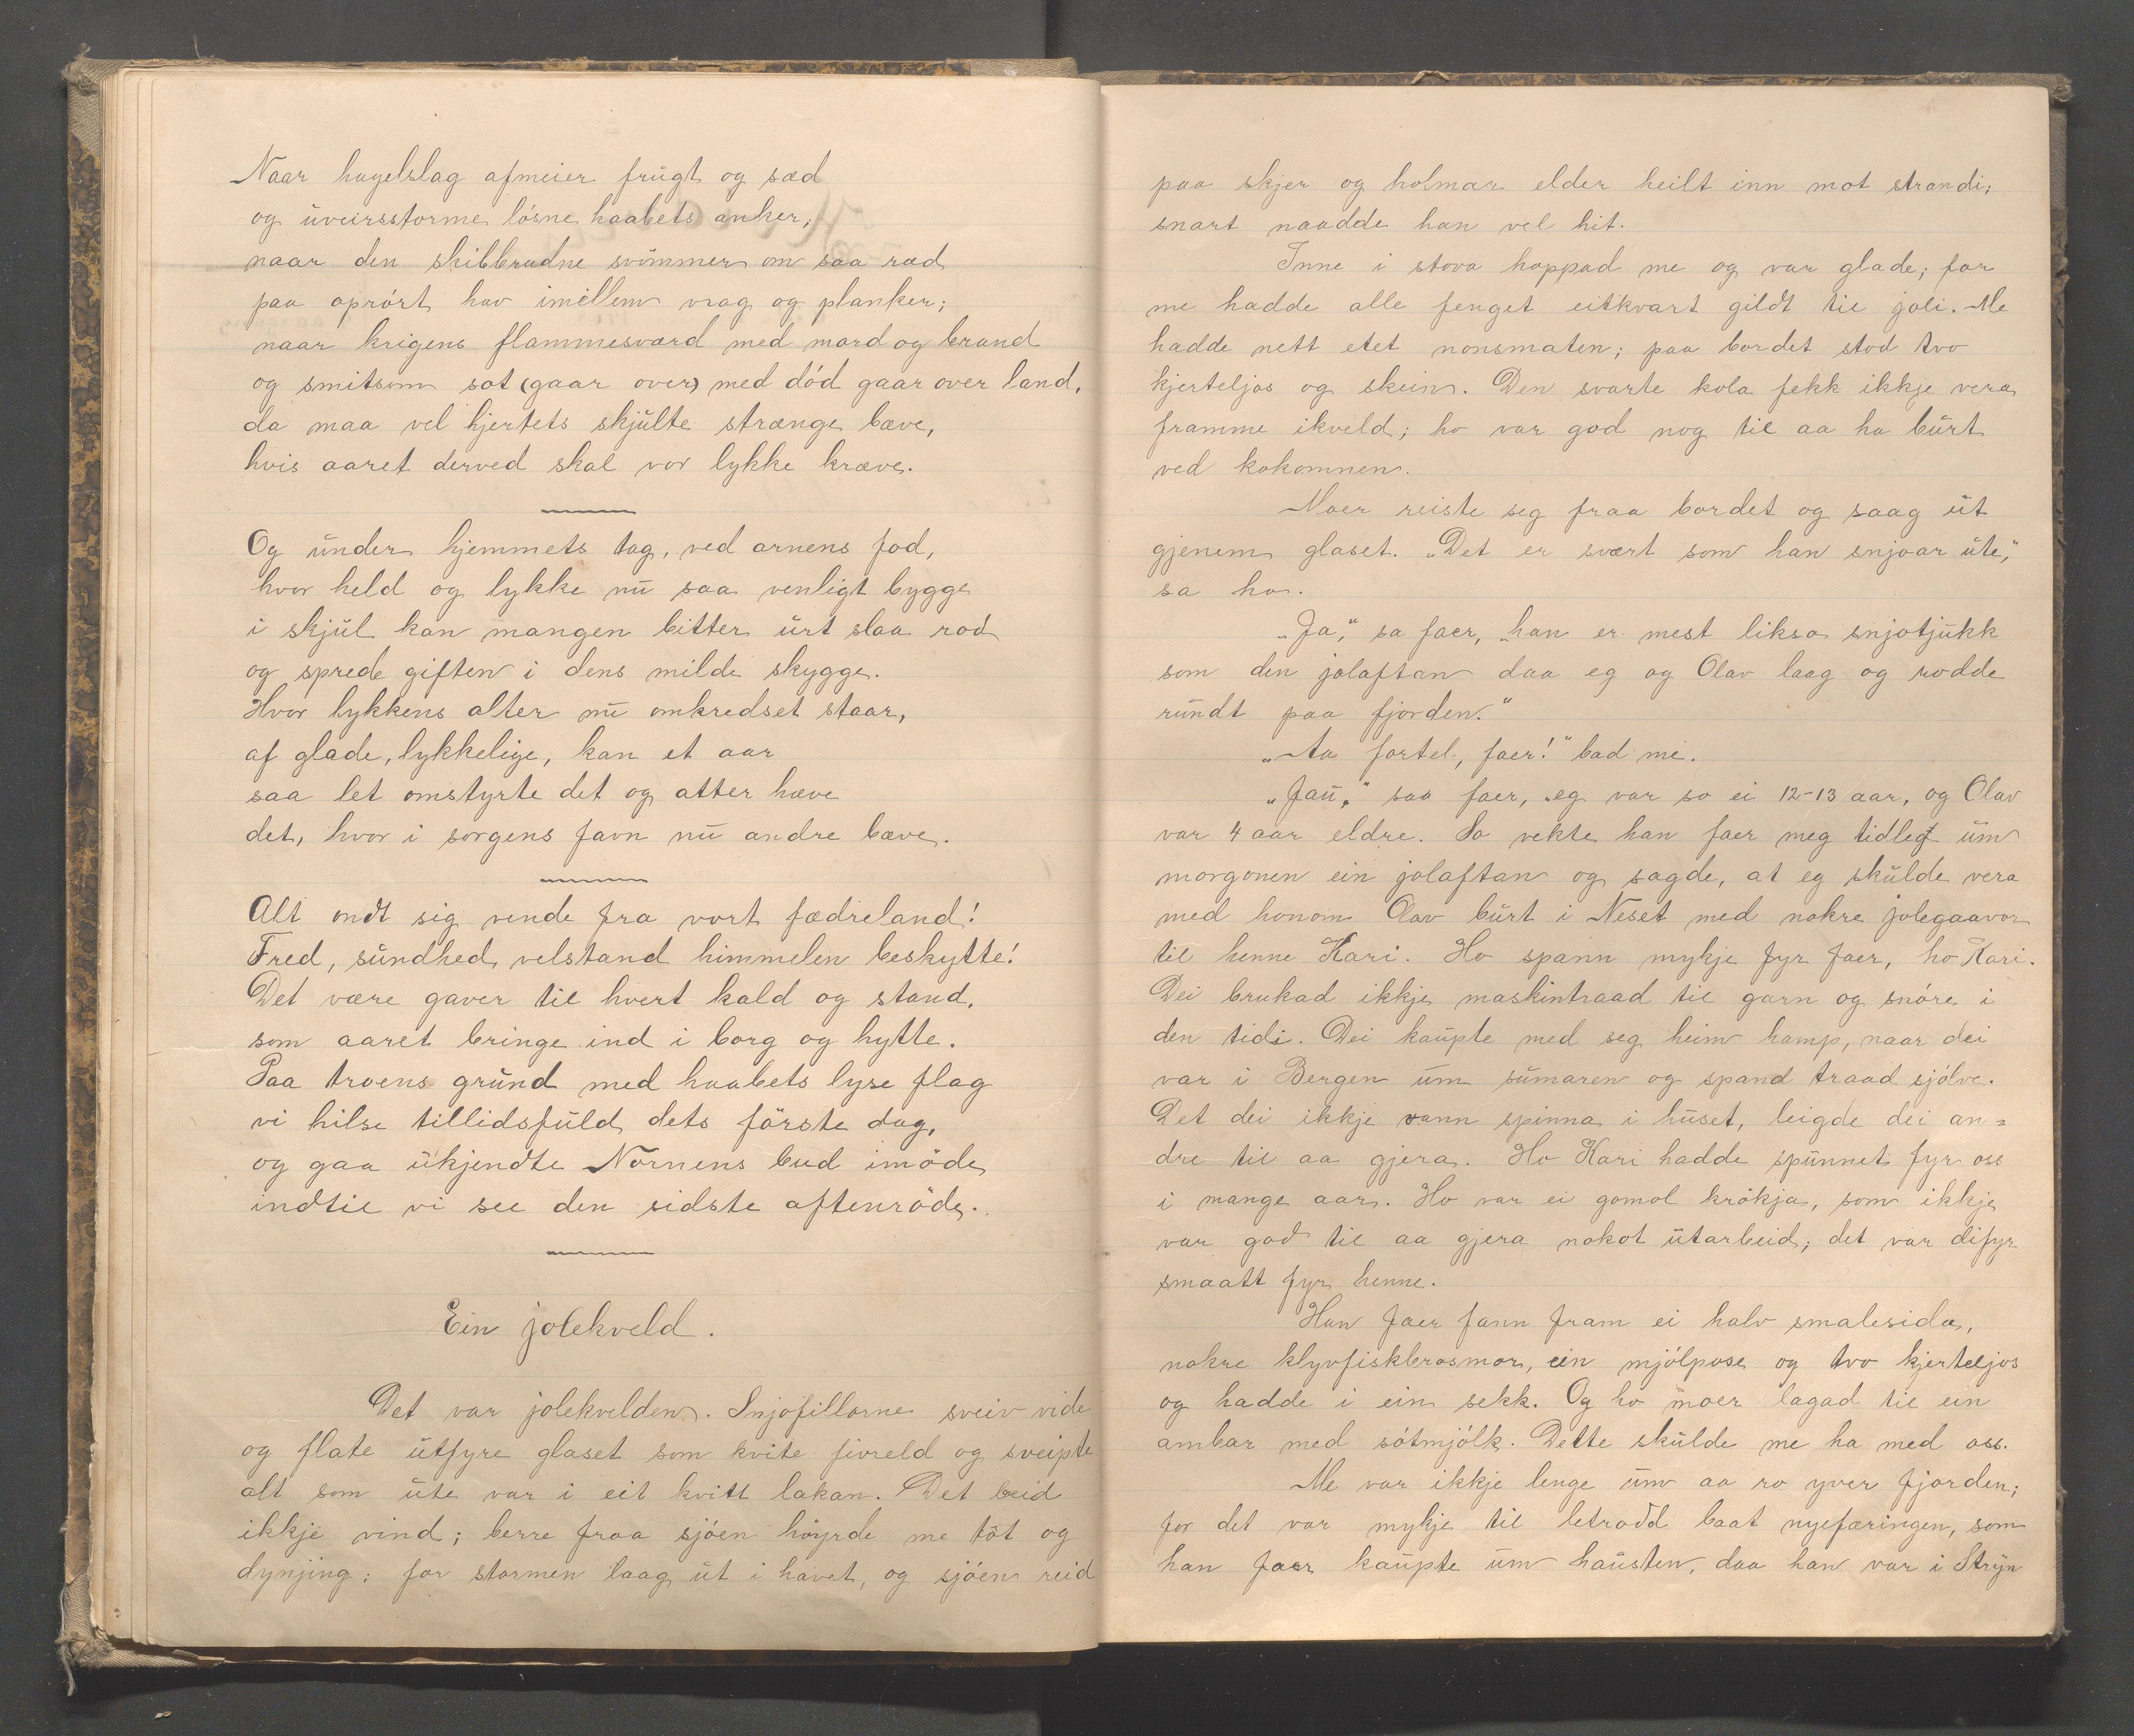 Naar hagelslag afmeier frugt og sæd
og uveirsstorme lósne haabets anker,
naar den skibbrudne svömmer om saa ræd
paa oprórt hav imellem vrag og planker;
naar krigens flammesværd med mord og brand
og smitsom sot (gaar over) med död gaar over land,
da maa vel hjertets skjulte strænge bæve,
hvis aaret derved skal vor lykke kræve.
Og under hjemmets tag, ved arnens fod,
hvor held og lykke nu saa venligt bygge
i skjul kan mangen bitter urt slaa rod
og sprede giften i dens milde skygge.
Hvor lykkens alter nu omkredset staar,
af glade, lykkelige, kan et aar
saa let omstyrte det og atter hæve
det, hvor i sorgens favn nu andre bæve.
Alt ondt sig vende fra vort fædreland!
Fred, sundhed, velstand himmelen beskytte!
Det være gaver til hvert kald og stand,
som aaret bringe ind i borg og hytte.
Paa troens grund med haabets lyse flag
vi hilse tillidsfuld dets förste dag,
og gaa ukjendte Nornens bud imöde,
indtil vi see den sidste aftenröde.
Ein jolekveld.
Det var jolekvelden. Snjofillorne sveiv vide
og flate utfyre glaset som kvite fivreld og sveipte
alt som ute var i eit kvitt lakan. Det beid
ikkje vind; berre fraa sjóen höyrde me tót og
dynjing; for stormen laag ut i havet, og sjóen reid
paa skjer og holmar elder heilt inn mot strandi;
snart naadde han vel hit.
Inne i stova hoppad me og var glade; for
me hadde alle fenget eitkvart gildt til joli. Me
hadde nett etet nonsmaten; paa bordet stod tvo
kjerteljos og skein. Den svarte kola fekk ikkje vera
framme ikveld; ho var god nog til aa ha burt
ved kokomnen.
Moer reiste seg fraa bordet og saag ut
gjenem glaset. „Det er svært som han snjoar ute,"
sa ho.
„Ja," sa faer, „han er mest likso snjotjukk
som den jolaftan daa eg og Olav laag og rodde
rundt paa fjorden."
„Aa fortel, faer!" bad me.
„Jau," saa faer, „eg var so ei 12-13 aar, og Olav
var 4 aar eldre. So vekte han faer meg tidleg um
morgonen ein jolaftan og sagde, at eg skulde vera
med honom Olav burt i Neset med nokre jolegaavor
til henne Kari. Ho spann mykje fyr faer, ho Kari.
Dei brukad ikkje maskintraad til garn og snóre i
den tidi. Dei kaupte med seg heim hamp, naar dei
var i Bergen um sumaren og spand traad sjólve.
Det dei ikkje vann spinna i huset, leigde dei an=
dre til aa gjera. Ho Kari hadde spunnet fyr oss
i mange aar. Ho var ei gomol krókja, som ikkje
var god til aa gjera nokot utarbeid; det var difyr
smaatt fyr henne.
Han faer fann fram ei halv smalesida,
nokre klyvfiskbrosmor, ein mjólpose og tvo kjerteljos
og hadde i ein sekk. Og ho moer lagad til ein
ambar med sótmjólk. Dette skulde me ha med oss.
Me var ikkje lenge um aa ro yver fjorden;
for det var mykje til letrodd baat nyefæringen, som
han faer kaupte um hausten, daa han var i Stryn